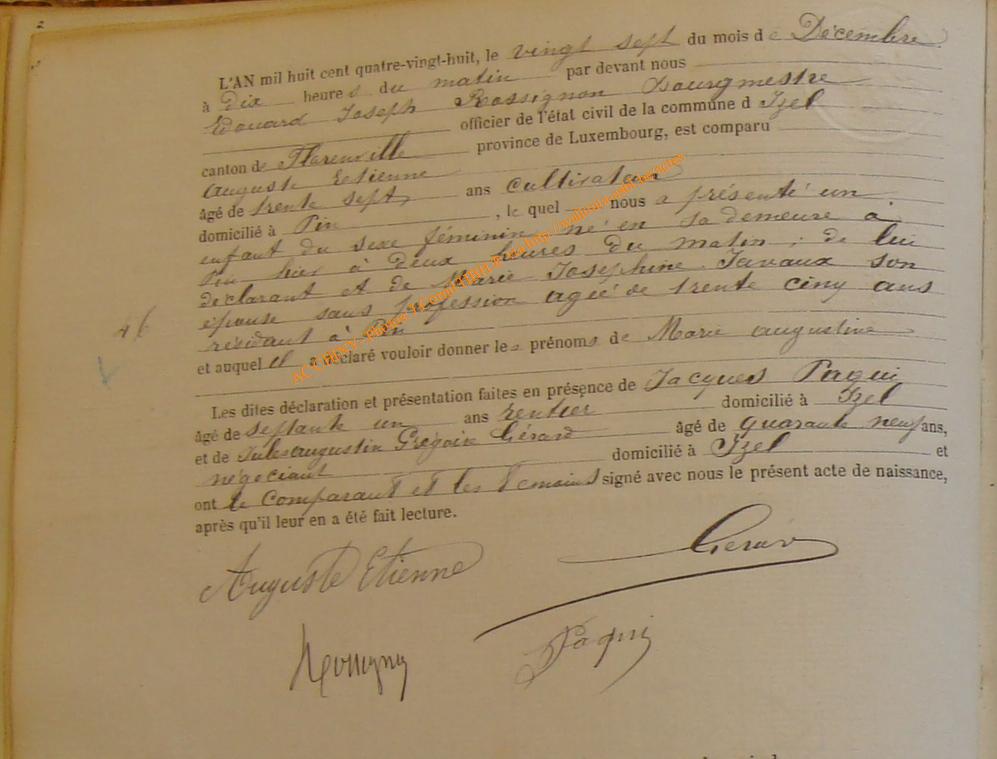 L'AN mil huit cent quatre-vingt-huit, le vingt sept du mois de Décembre
à Dix heures du matin par devant nous
Edouard Joseph Rossignon Bourgmestre
officier de l'état civil de la commune d Izel
canton de Florenville province de Luxembourg, est comparu
Auguste Etienne
âgé de trente sept ans Cultivateur
domicilié à Pin , le quel nous a présenté un
enfant du sexe féminin né en sa demeure à
Pin hier à Deux heures du matin ; de lui
déclarant et de Marie Josephine Javaux son
épouse sans profession agée de trente cinq ans
résidant à Pin
et auquel il a déclaré vouloir donner les prénoms de Marie Augustine
Les dites déclaration et présentation faites en présence de Jacques Paqui
âgé de septante un ans rentier domicilié à Izel
et de Jules augustin Grégoire Gérard âgé de quarante neuf ans,
négociant domicilié à Izel et
ont le Comparant et les témoins signé avec nous le présent acte de naissance,
après qu'il leur en a été fait lecture.
Auguste Etienne
Gérard
Paqui
46
2